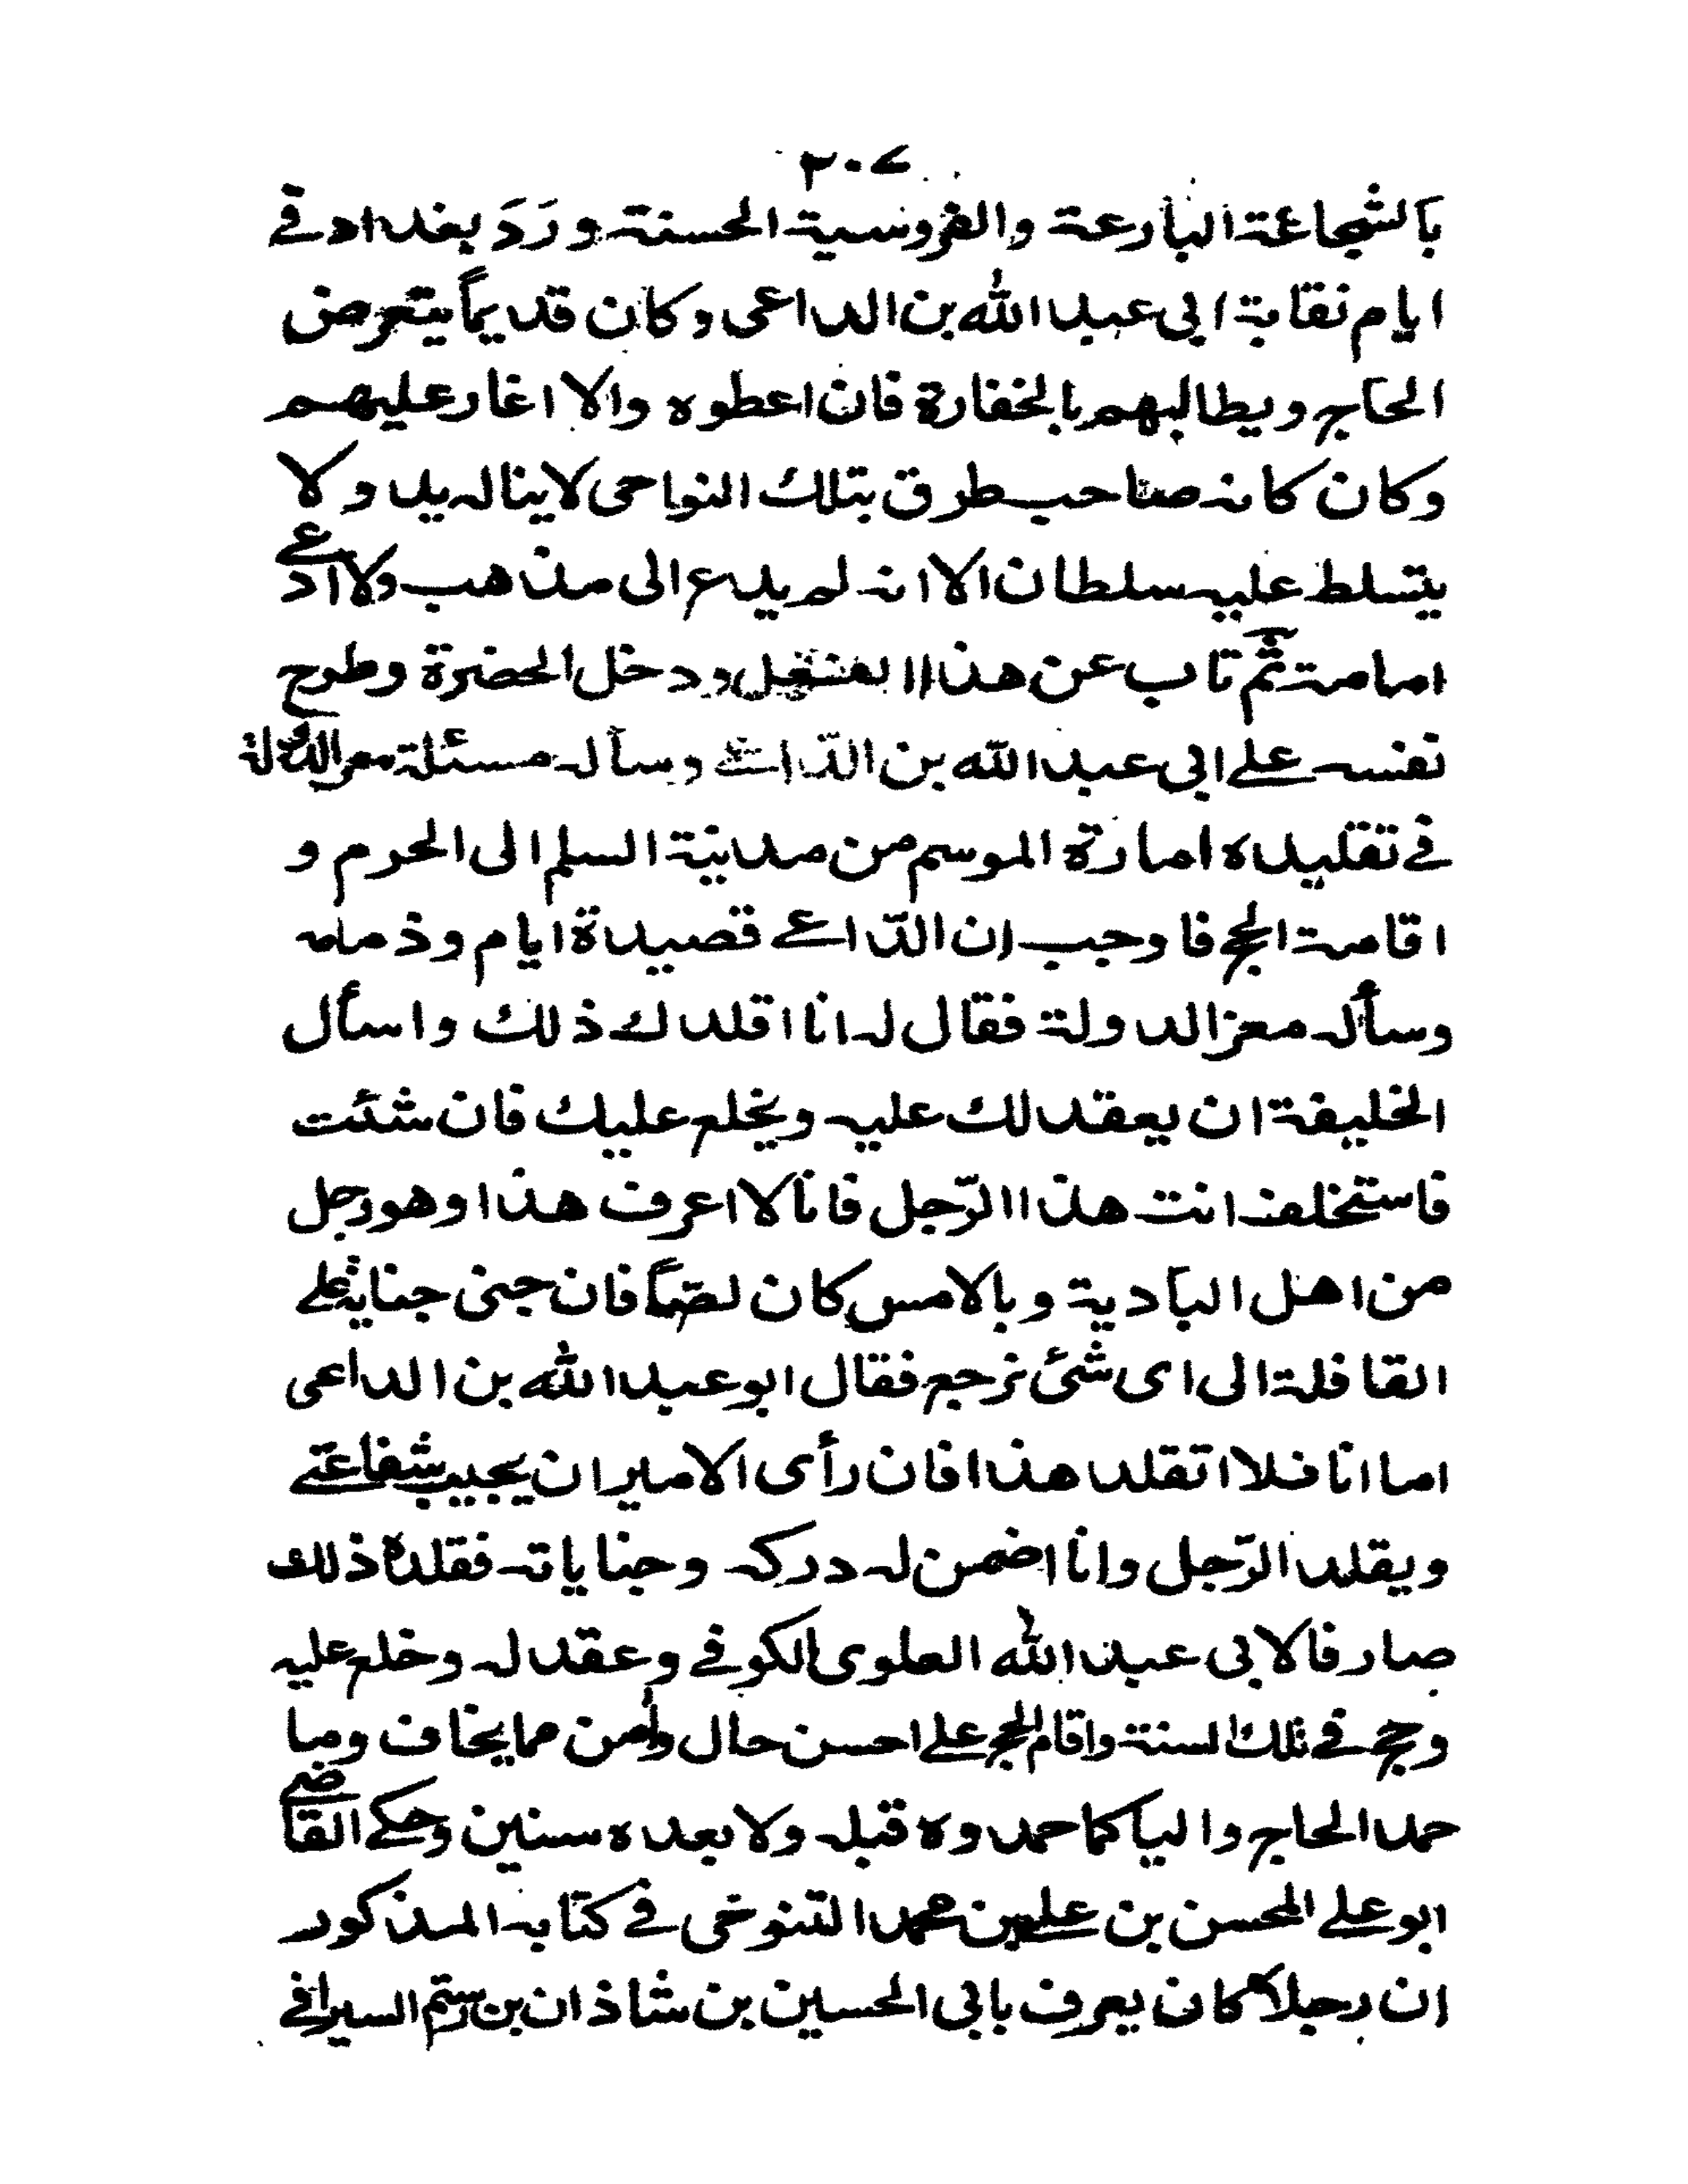 ٢٠٧
بالشجاعة البارعة والفروسية الحسنة ورَدَ بغداد في
ايام نقابة ابى عبد الله بن الداعى وكان قديماً يتعرض
الحاج ويطالبهم بالخفارة فان اعطوه والا اغار عليهم
وكان كانه صاحب طرق بتلك النواحى لا يناله يد ولا
يتسلط عليه سلطان الا انه لم يدع الى مذهب ولا ادعى
امامة ثم تاب عن هذا الفعل ودخل الحضرة وطرح
نفسه على ابى عبد الله بن الداعى وسأله مسئلة معز الدولة
في تقليده امارة الموسم من مدينة السلم الى الحرم و
اقامة الحج فاوجب ان الدّاعى قصيدة ايام وذمامه
وسأله معز الدولة فقال له انا اقلدك ذلك واسأل
الخليفة ان يعقد لك عليه ويخلع عليك فان شئت
فاستخلف انت هذا الرّجل فانا لا اعرف هذا وهو رجل
من اهل البادية وبالامس كان لصّاً فان جنى جناية على
القافلة الى اى شئ نرجع فقال ابو عبد الله بن الداعى
اما انا فلا اتقلد هذا فان رأى الامير ان يجيب شفاعتى
ويقلد الرّجل وانا اضمن له دركه وجناياته فقلده ذلك
صارفا لابى عبد الله العلوى الكوفى وعقد له وخلع عليه
وحج في تلك السنة واقام الحج على احسن حال وأمن مما يخاف وما
حمد الحاج واليا كما حمدوه قبله ولا بعده سنين وحكى القاضى
ابو على المحسن بن على بن محمد التنوخى في كتابه المذكور
ان رجلا كان يعرف بابى الحسين بن شاذان بن رستم السيرافى